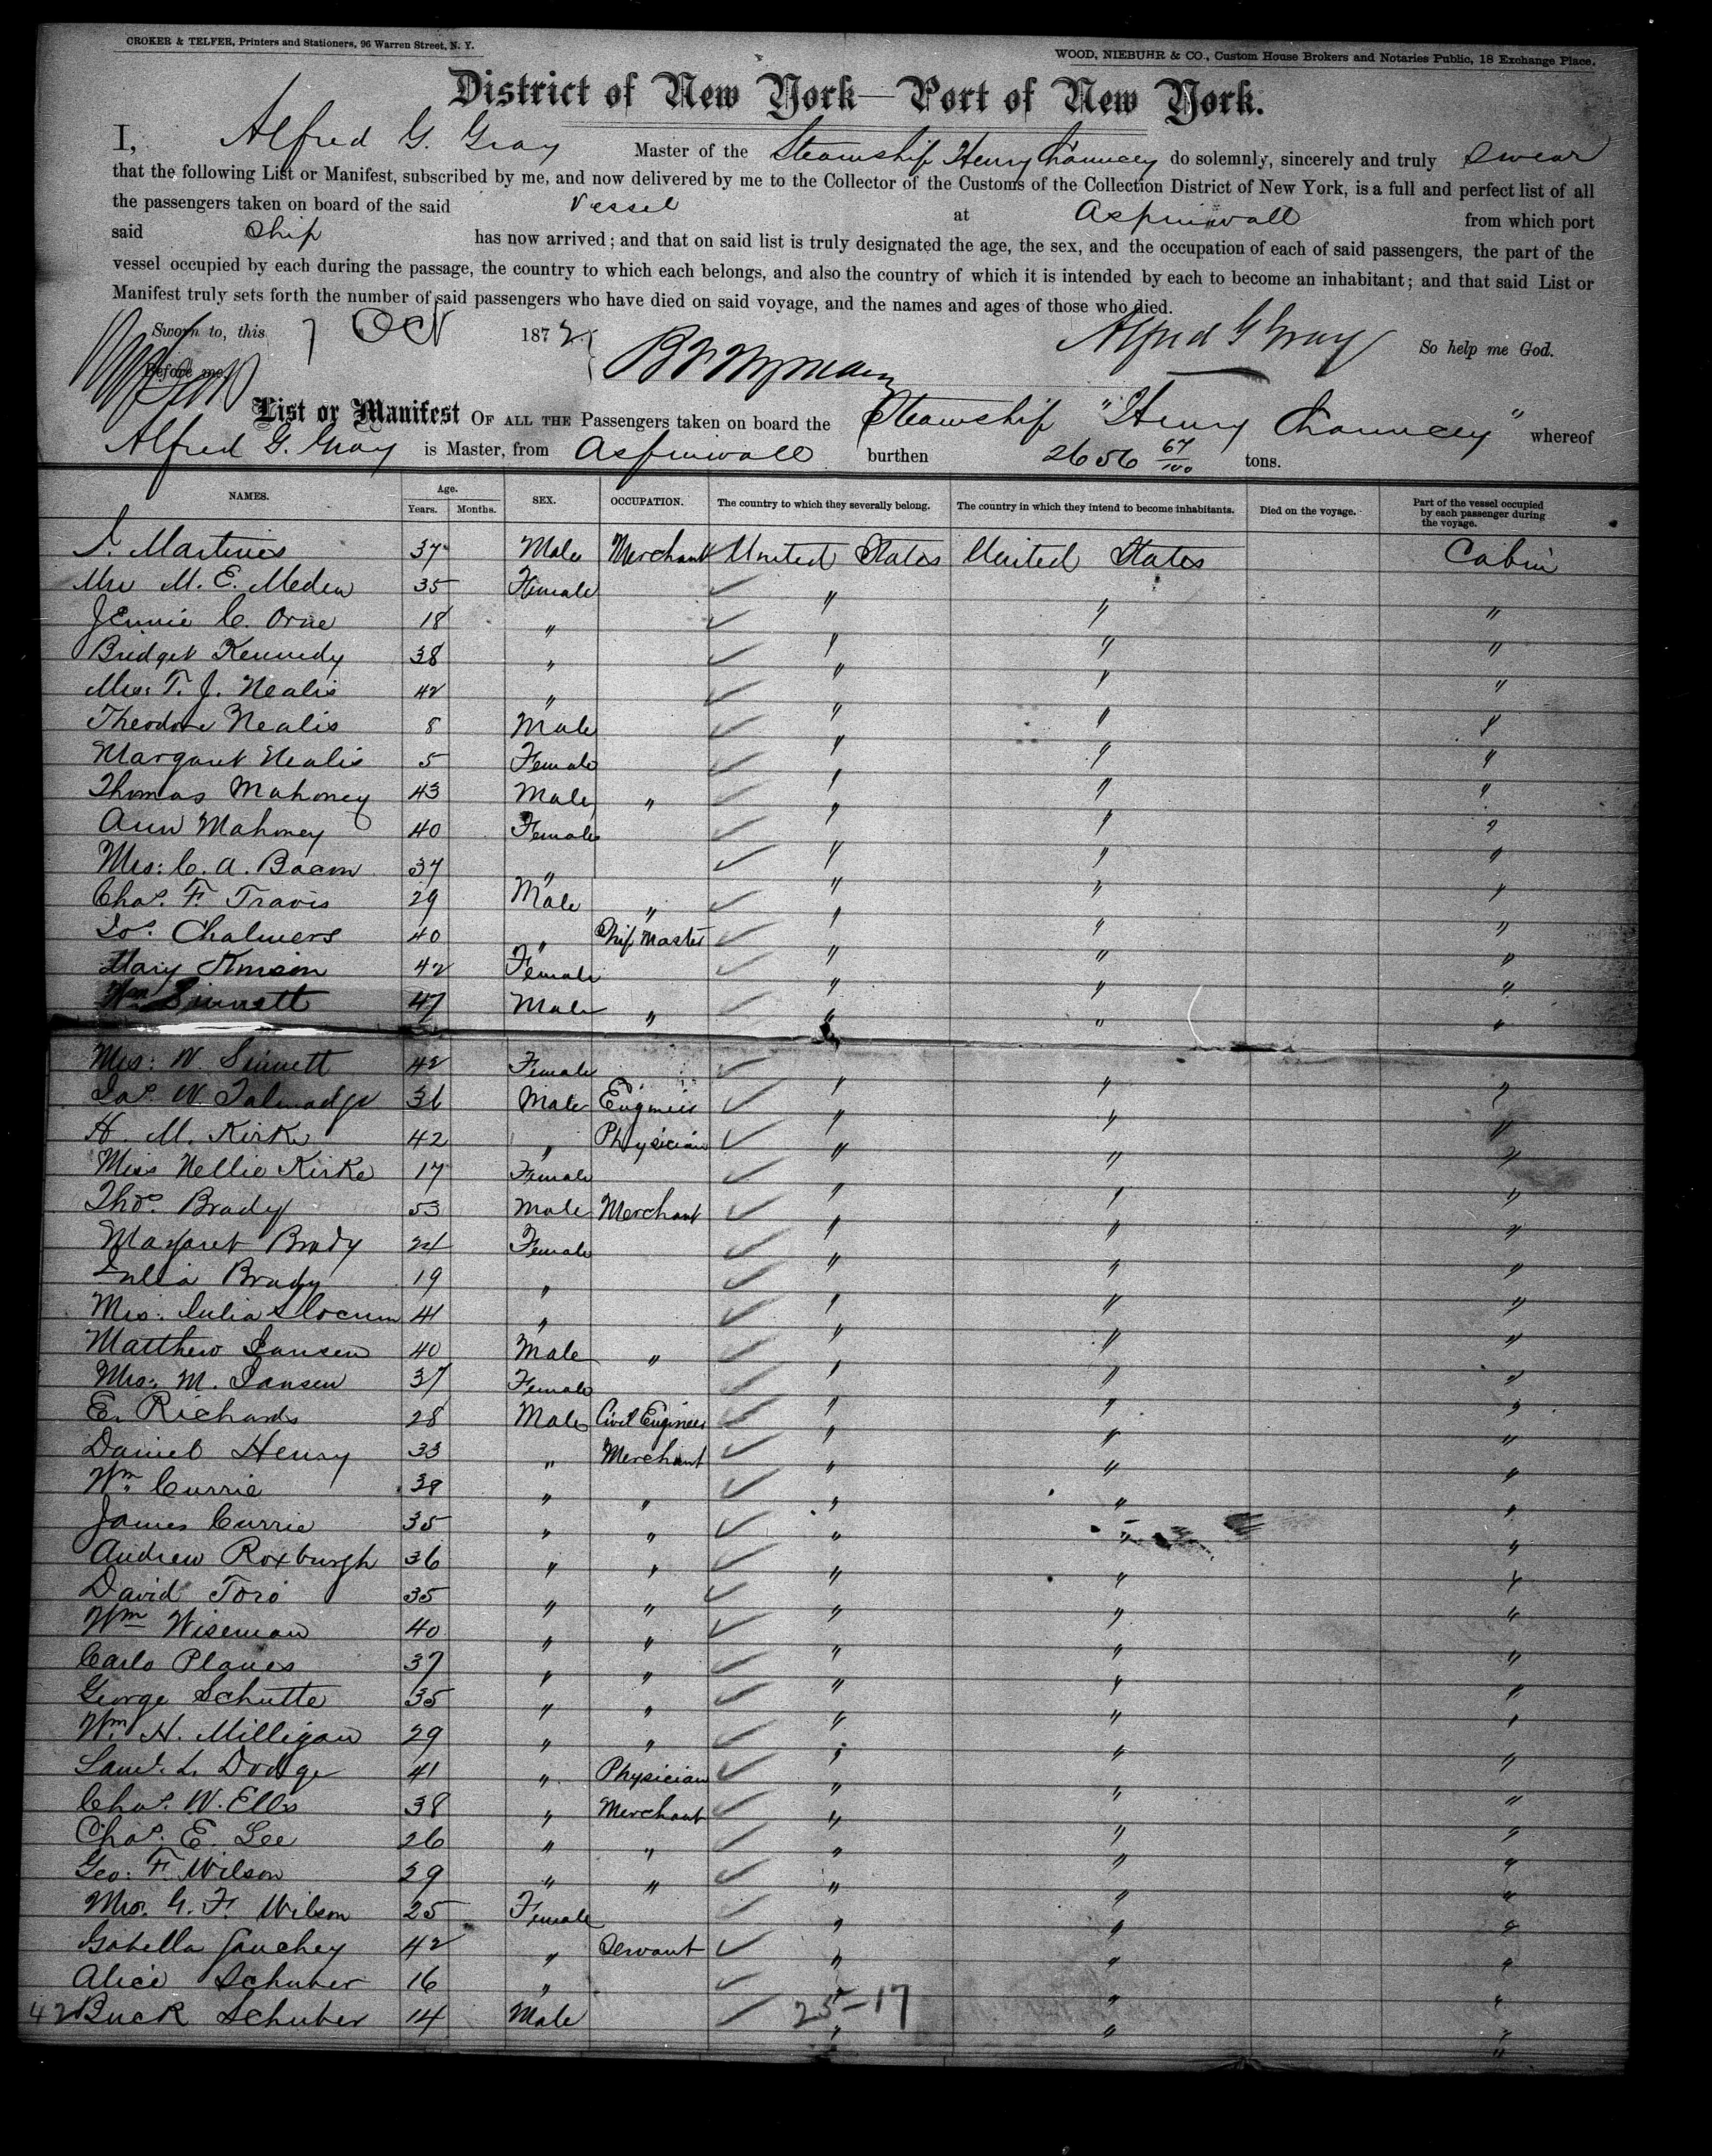 CROKER & TELFER, Printers and Stationers, 96 Warren Street, N. Y.
WOOD, NIEBUHR & CO., Custom House Brokers and Notaries Public, 18 Exchange Place.
District of New York—Port of New York.
I, Alfred G. Gray Master of the Steamship Henry Chauncey do solemnly, sincerely and truly swear
that the following List or Manifest, subscribed by me, and now delivered by me to the Collector of the Customs of the Collection District of New York, is a full and perfect list of all
the passengers taken on board of the said vessel at Aspinwall from which port
said Ship has now arrived; and that on said list is truly designated the age, the sex, and the occupation of each of said passengers, the part of the
vessel occupied by each during the passage, the country to which each belongs, and also the country of which it is intended by each to become an inhabitant; and that said List or
Manifest truly sets forth the number of said passengers who have died on said voyage, and the names and ages of those who died.
Sworn to, this 7 Oct 1872 Alfred G Gray So help me God.
Before me,
List or Manifest OF ALL THE Passengers taken on board the Steamship "Henry Chauncey" whereof
Alfred G. Gray is Master, from Aspinwall burthen 2656 67/100 tons.
NAMES. Age. Years. Months. SEX. OCCUPATION. The country to which they severally belong. The country in which they intend to become inhabitants. Died on the voyage. Part of the vessel occupied by each passenger during the voyage.
J. Martines 37 Male Merchant United States United States Cabin
Mrs M. E. Meden 35 Female " " "
Jennie C. Orne 18 " " " "
Bridget Kennedy 38 " " " "
Mrs: T. J. Nealis 42 " " " "
Theodore Nealis 8 Male " " "
Margaret Nealis 5 Female " " "
Thomas Mahoney 43 Male " " " "
Ann Mahoney 40 Female " " "
Mrs: C. A. Bacon 37 " " " "
Chas. F. Travis 29 Male " " " "
Jos. Chalmers 40 " Ship Master " " "
Mary 42 Female " " "
Wm Sinnett 47 Male " " " "
Mrs: W. Sinnett 42 Female " " "
Jas. W. Talmadge 36 Male Engineer " " "
H. M. Kirke 42 " Physician " " "
Miss Nellie Kirke 17 Female " " "
Thos. Brady 53 Male Merchant " " "
Margaret Brady 24 Female " " "
Julia Brady 19 " " " "
Mrs: Julia Slocum 41 " " " "
Matthew Jansen 40 Male " " " "
Mrs: M. Jansen 37 Female " " "
E. Richards 28 Male Civil Engineer " " "
Daniel Henry 33 " Merchant " " "
Wm. Currie 38 " " " " "
James Currie 35 " " " " "
Andrew Roxburgh 36 " " " " "
David Toro 35 " " " " "
Wm Wiseman 40 " " " " "
Carlo Planes 37 " " " " "
George Schutte 35 " " " " "
Wm. H. Milligan 29 " " " " "
Saml. L. Dodge 41 " Physician " " "
Chas. W. Ells 38 " Merchant " " "
Chas. E. Lee 26 " " " " "
Geo: F. Wilson 29 " " " " "
Mrs. G. F. Wilson 25 Female " " "
Isabella 42 " Servant " " "
Alice Schuber 16 " " " "
42 Buck Schuber 14 Male " " "
25-17